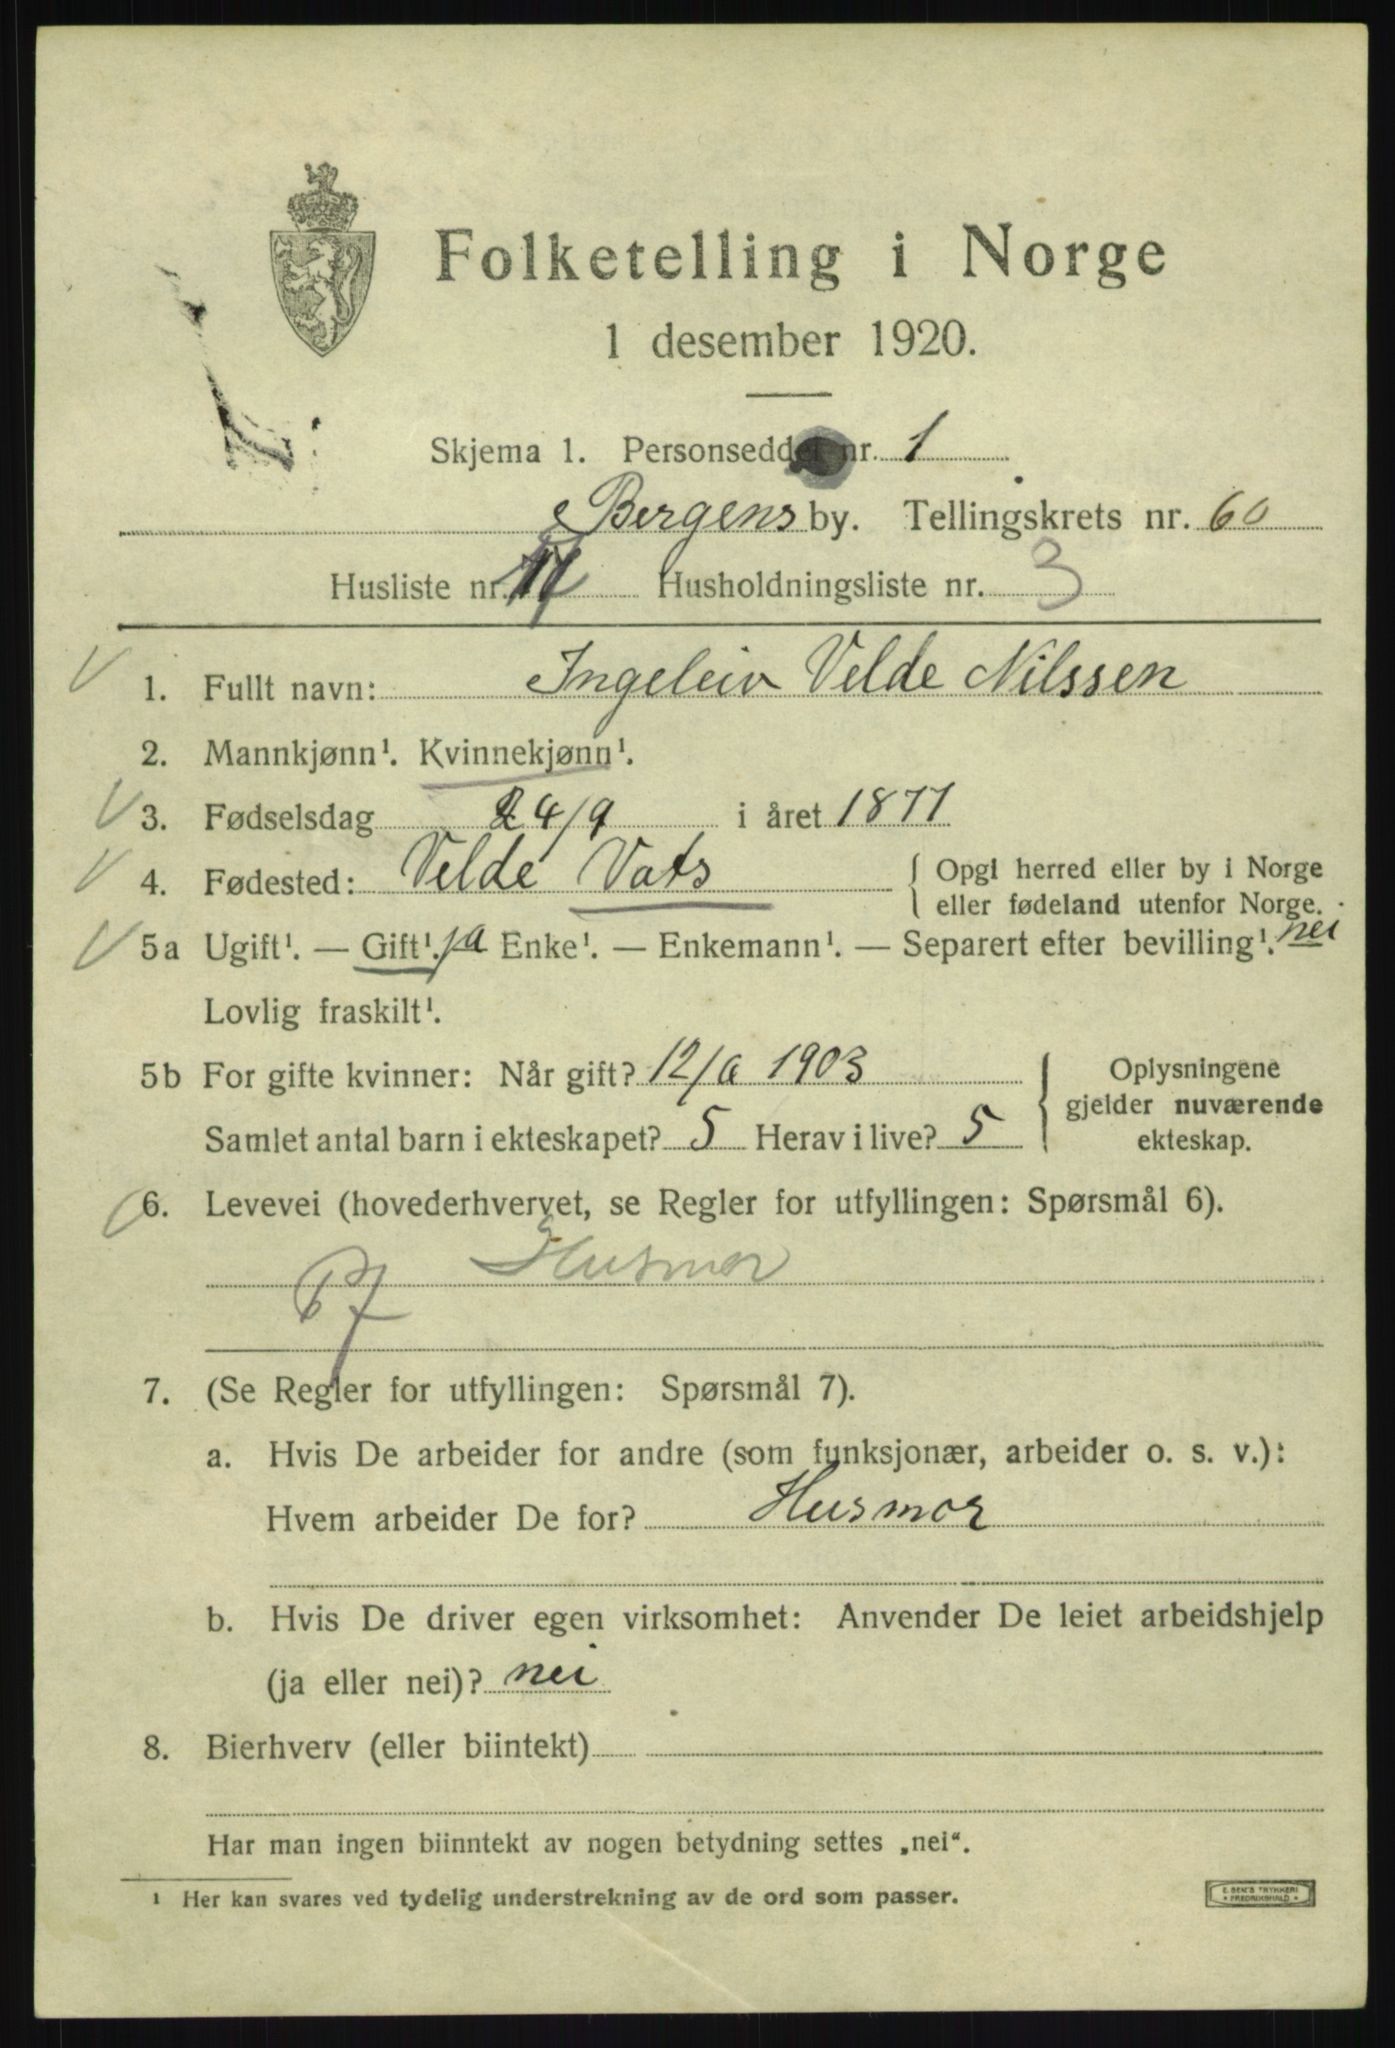 Folketelling i Norge
1 desember 1920.
Skjema 1. Personseddel nr. 1
Bergens by. Tellingskrets nr. 60
Husliste nr. Husholdningsliste nr. 3
1. Fullt navn: Ingeleiv Velde Nilssen
2. Mannkjønn¹. Kvinnekjønn¹.
3. Fødselsdag 24/9 i året 1877
4. Fødested: Velde Vats { Opgi herred eller by i Norge
eller fødeland utenfor Norge.
5a Ugift¹. — Gift¹. ja Enke¹. — Enkemann¹. — Separert efter bevilling¹. nei
Lovlig fraskilt¹.
5b For gifte kvinner: Når gift? 1903 Oplysningene
gjelder nuværende
Samlet antal barn i ekteskapet? 5 Herav i live? 5 ekteskap.
6. Levevei (hovederhvervet, se Regler for utfyllingen: Spørsmål 6).
Husmor
7. (Se Regler for utfyllingen: Spørsmål 7).
a. Hvis De arbeider for andre (som funksjonær, arbeider o. s. v.):
Hvem arbeider De for? Husmor
b. Hvis De driver egen virksomhet: Anvender De leiet arbeidshjelp
(ja eller nei)? nei
8. Bierhverv (eller biintekt)
Har man ingen biinntekt av nogen betydning settes „nei“.
¹ Her kan svares ved tydelig understrekning av de ord som passer.
E. SEM'S TRYKKERI
* FREDRIKSHALD *